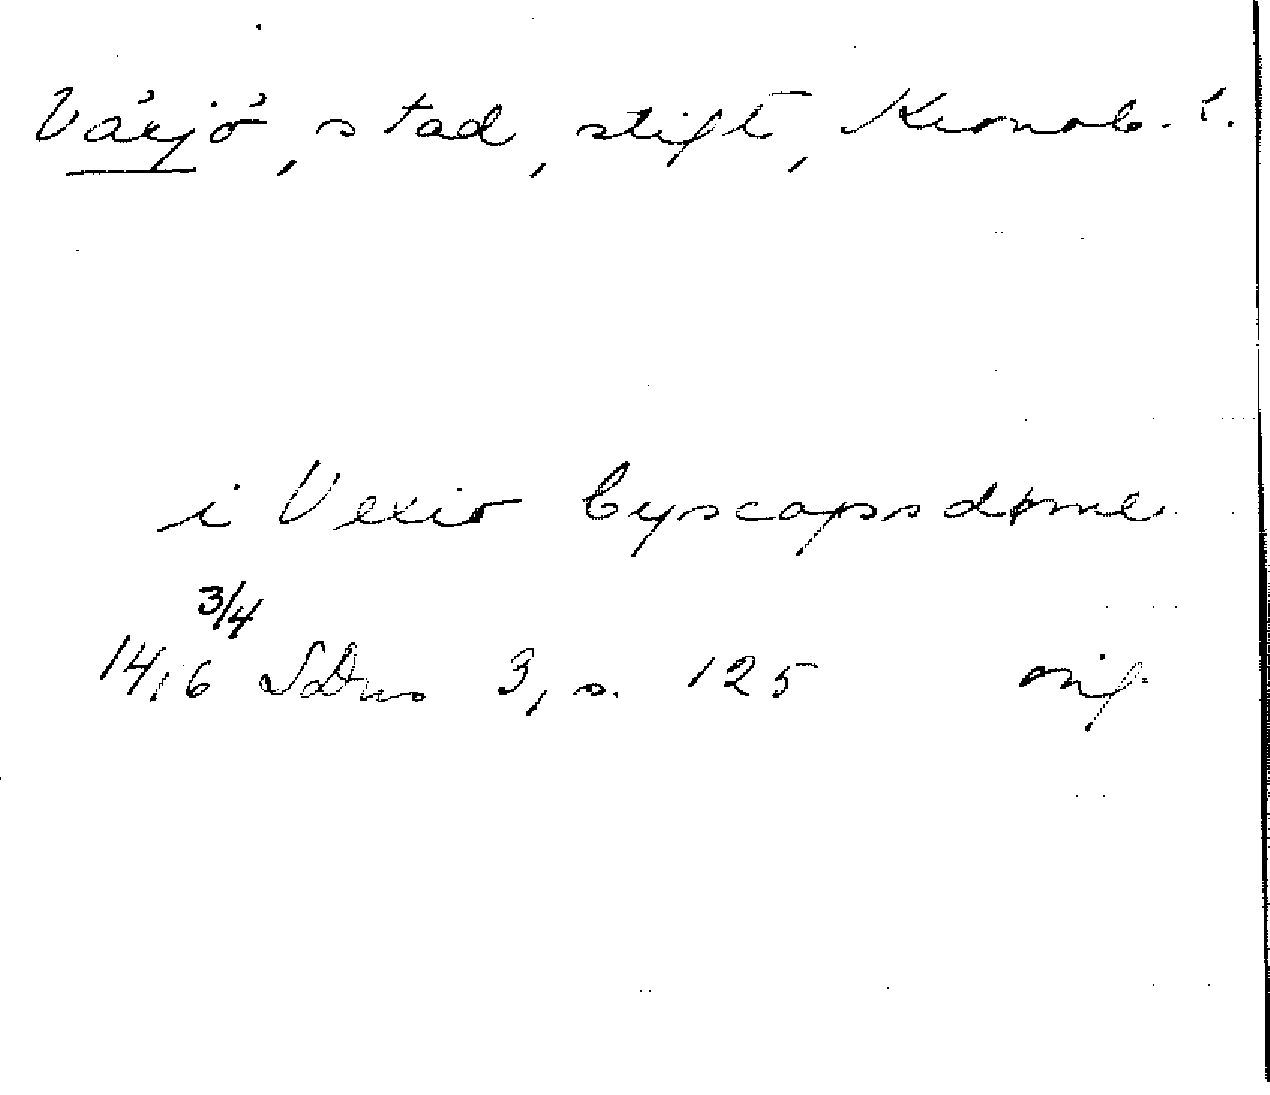 Växjö, stad, stift, Kronob. l.
i Vexio byscopsdøme
3/4
1416 SDns 3, s. 125 or